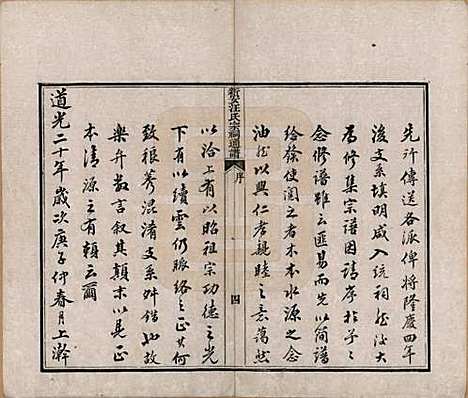 先行傳送各派俾將隆慶四年
後支系填明咸入統祠然後大
為修集宗譜因請序於予予
念修譜雖云匪易而先以簡譜
給發使閱之者木本水源之念
油然以興仁孝親睦之意藹然
新安汪氏宗祠通譜
序
四
以洽上有以昭祖宗功德之光
下有以續雲仍脈络之正其何
致稂莠混淆支系舛錯也故
樂弁數言叙其顛末以見正
本清源之有賴云爾
道光二十年歲次庚子仲春月上澣